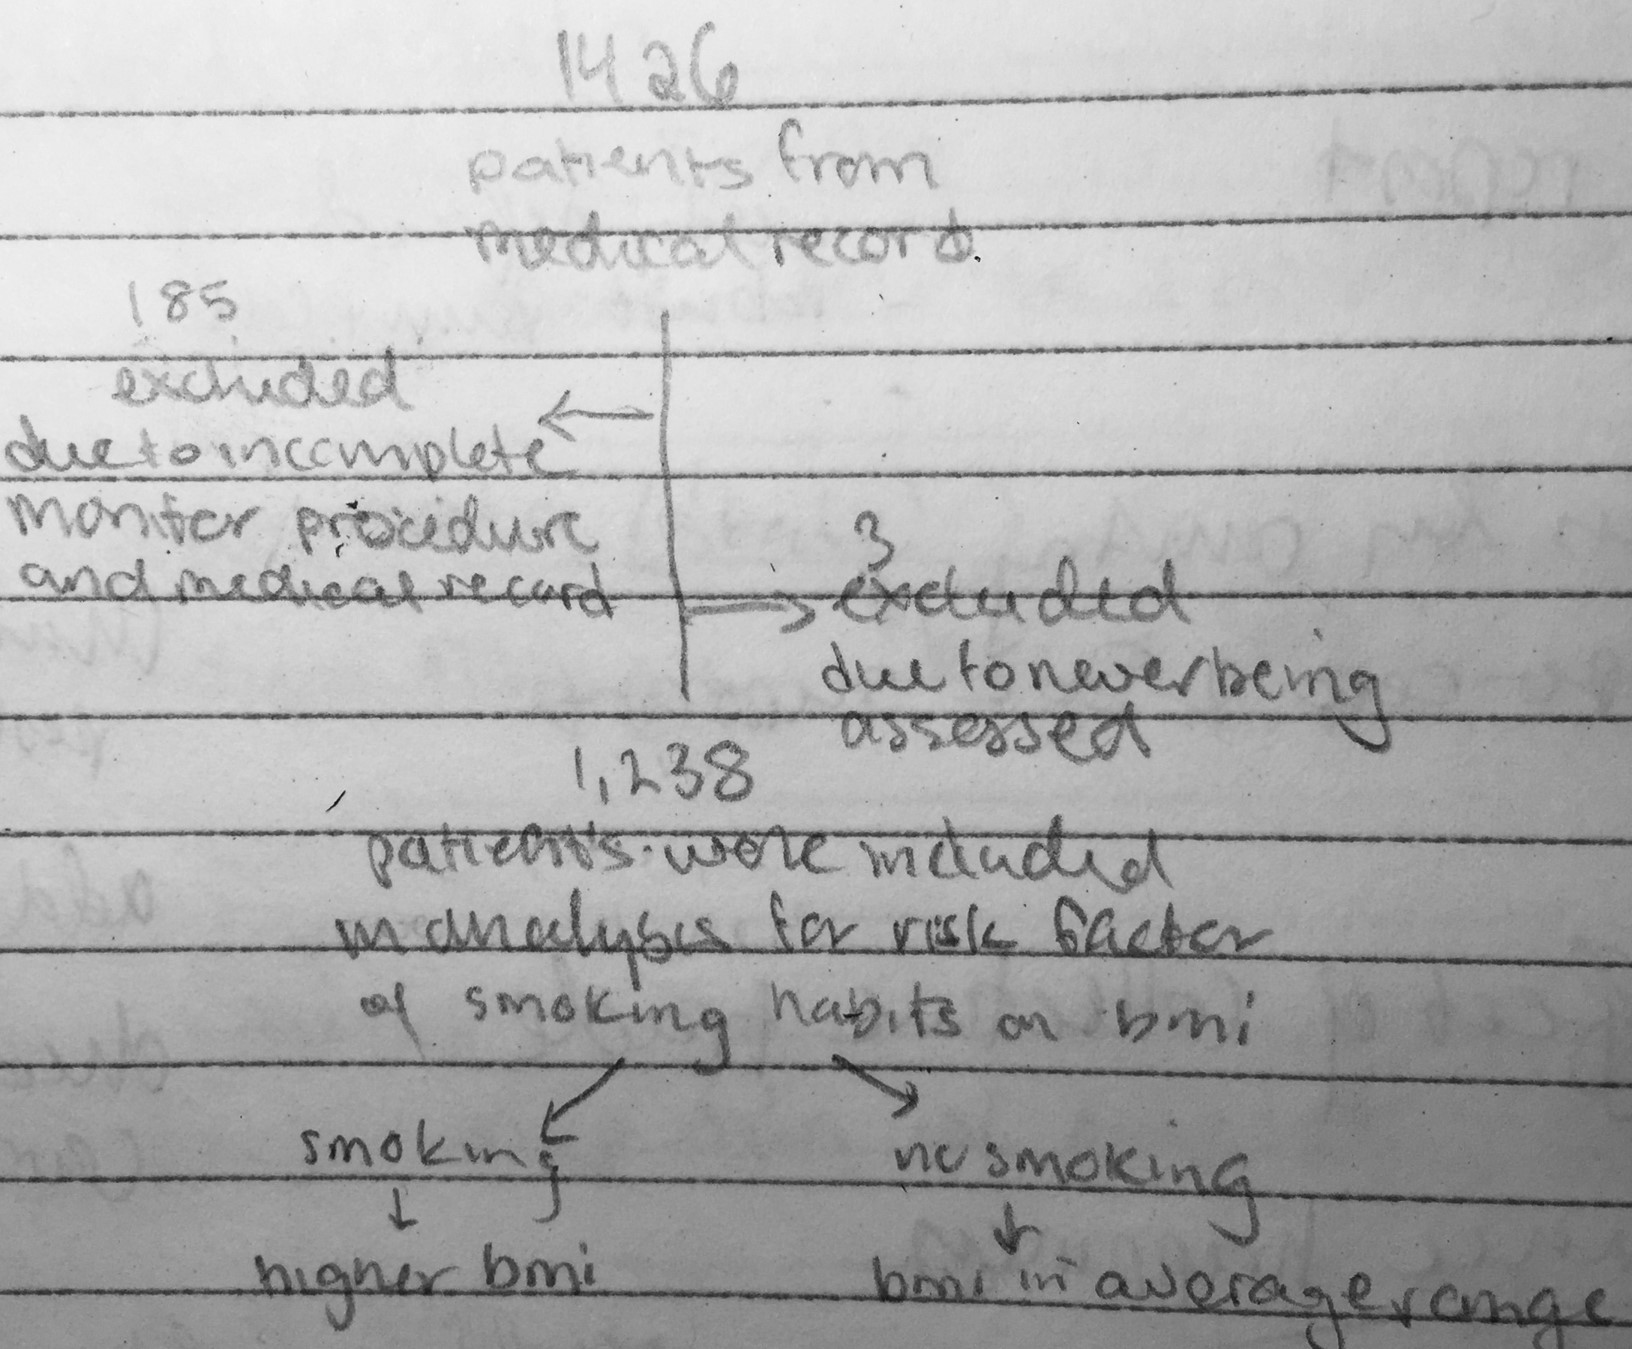 1426
patients from
medical record.
185
excluded
due to incomplete
monitor procedure
and medical record
3
excluded
due to never being
assessed
1,238
patients were included
in analysis for risk factor
of smoking habits on bmi
smoking
no smoking
higher bmi
bmi in average range